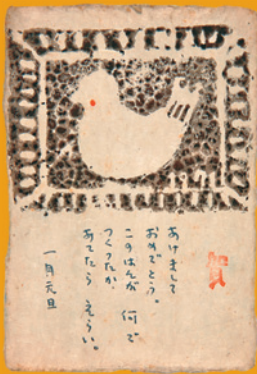 1971
賀
あけまして
おめでとう。
このはんが 何で
つくったか、
あてたら えらい。
一月元旦